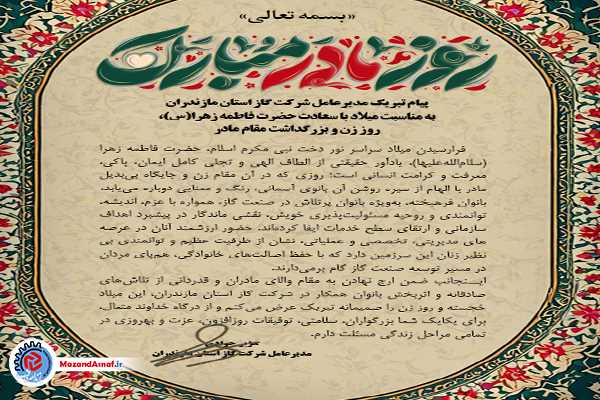 «بسمه تعالی»
روز مادر مبارک
پیام تبریک مدیرعامل شرکت گاز استان مازندران
به مناسبت میلاد با سعادت حضرت فاطمه زهرا(س)،
روز زن و بزرگداشت مقام مادر
فرارسیدن میلاد سراسر نور دخت نبی مکرم اسلام، حضرت فاطمه زهرا
(سلام‌الله‌علیها)، یادآور حقیقتی از الطاف الهی و تجلی کامل ایمان، پاکی،
معرفت و کرامت انسانی است؛ روزی که در آن مقام زن و جایگاه بی‌بدیل
مادر با الهام از سیره روشن آن بانوی آسمانی، رنگ و معنایی دوباره می‌یابد.
بانوان فرهیخته، به‌ویژه بانوان پرتلاش در صنعت گاز، همواره با عزم، اندیشه،
توانمندی و روحیه مسئولیت‌پذیری خویش، نقشی ماندگار در پیشبرد اهداف
سازمانی و ارتقای سطح خدمات ایفا کرده‌اند. حضور ارزشمند آنان در عرصه
های مدیریتی، تخصصی و عملیاتی، نشان از ظرفیت عظیم و توانمندی بی
نظیر زنان این سرزمین دارد که با حفظ اصالت‌های خانوادگی، هم‌پای مردان
در مسیر توسعه صنعت گاز گام برمی‌دارند.
اینجانب ضمن ارج نهادن به مقام والای مادران و قدردانی از تلاش‌های
صادقانه و اثربخش بانوان همکار در شرکت گاز استان مازندران، این میلاد
خجسته و روز زن را صمیمانه تبریک عرض می‌کنم و از درگاه خداوند متعال،
برای یکایک شما بزرگواران، سلامتی، توفیقات روزافزون، عزت و بهروزی در
تمامی مراحل زندگی مسئلت دارم.
مدیرعامل شرکت گاز استان مازندران
MazandAsnaf.ir